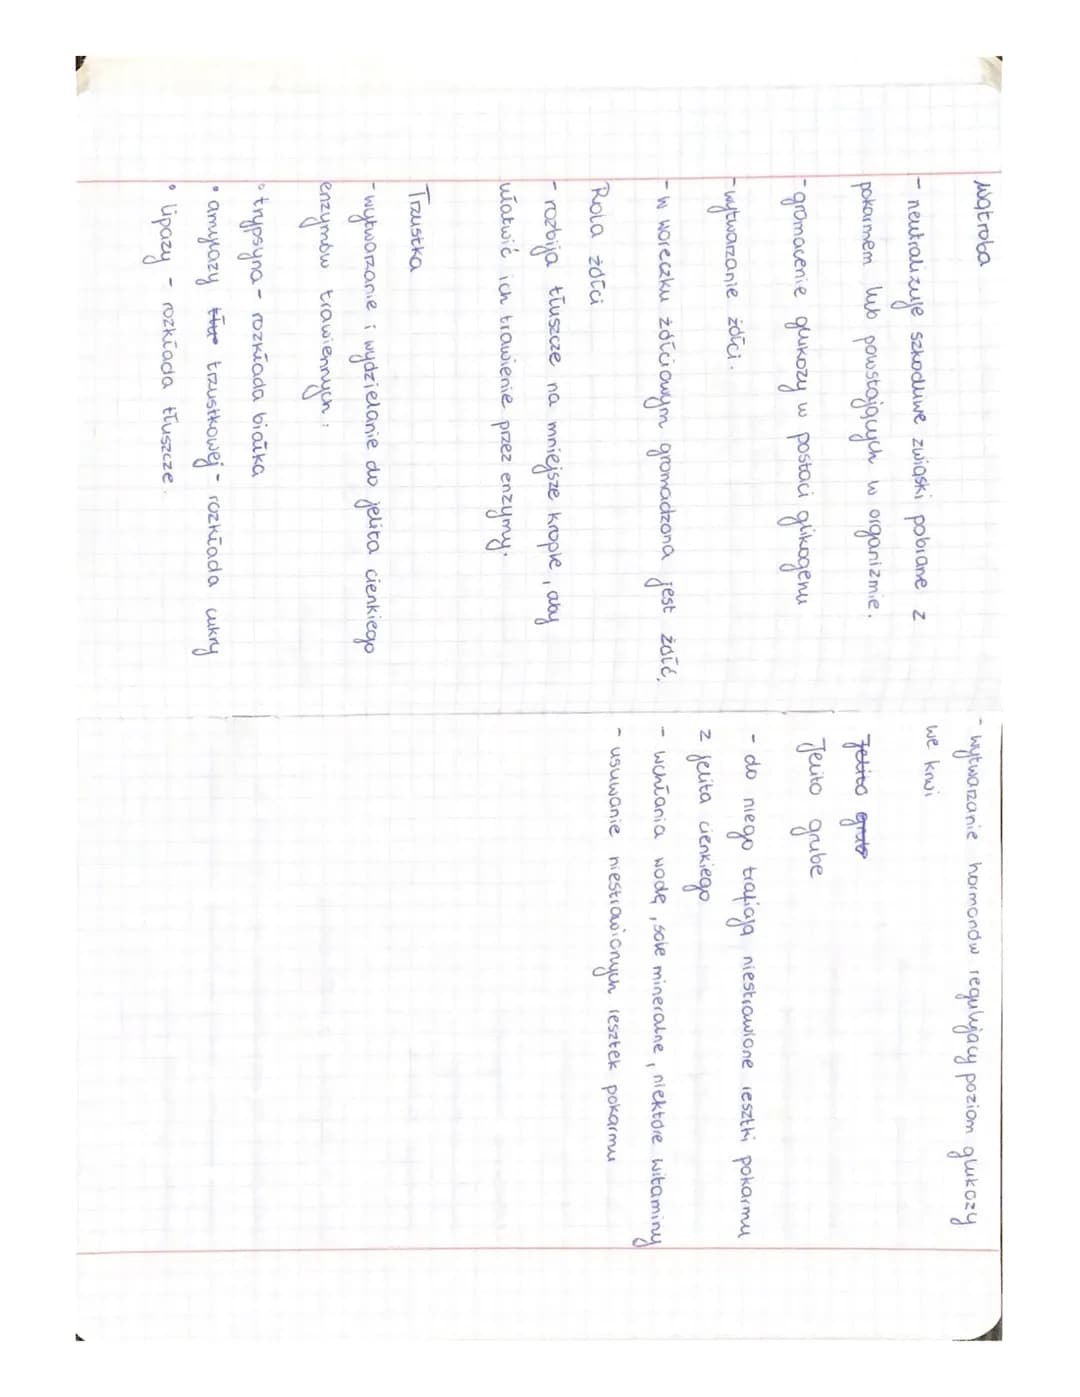 Wątroba
- neutralizuje szkodliwe związki pobrane z
pokarmem lub powstających w organizmie.
- gromacenie glukozy w postaci glikogenu
- wytwarzanie żółci.
- w woreczku żółciowym gromadzona jest żółć.
Rola żółci
- rozbija tłuszcze na mniejsze krople, aby
ułatwić ich trawienie przez enzymy.
Trzustka
- wytwarzanie i wydzielanie do jelita cienkiego
enzymów trawiennych:
• trypsyna - rozkłada białka
• amylazy trzustkowej - rozkłada cukry
• lipazy - rozkłada tłuszcze.
- wytwarzanie hormonów regulujący poziom glukozy
we krwi
Jelito grub
Jelito grube
- do niego trafiają niestrawione resztki pokarmu
z jelita cienkiego
- wchłania wodę, sole mineralne, niektóre witaminy
- usuwanie niestrawionych resztek pokarmu